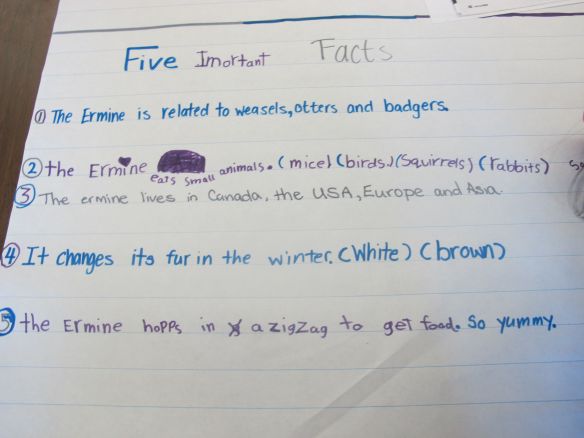 Five Imortant Facts
① The Ermine is related to weasels, otters and badgers.
② the Ermine eats small animals. (mice) (birds) (Squirrels) (rabbits)
③ The ermine lives in Canada, the USA, Europe and Asia.
④ It changes its fur in the winter. (White) (brown)
5 the Ermine hopps in a zigzag to get food. So yummy.